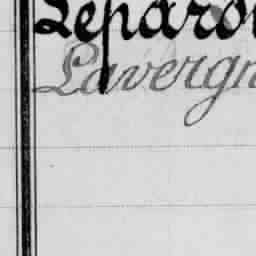 Lepard
Lavergn